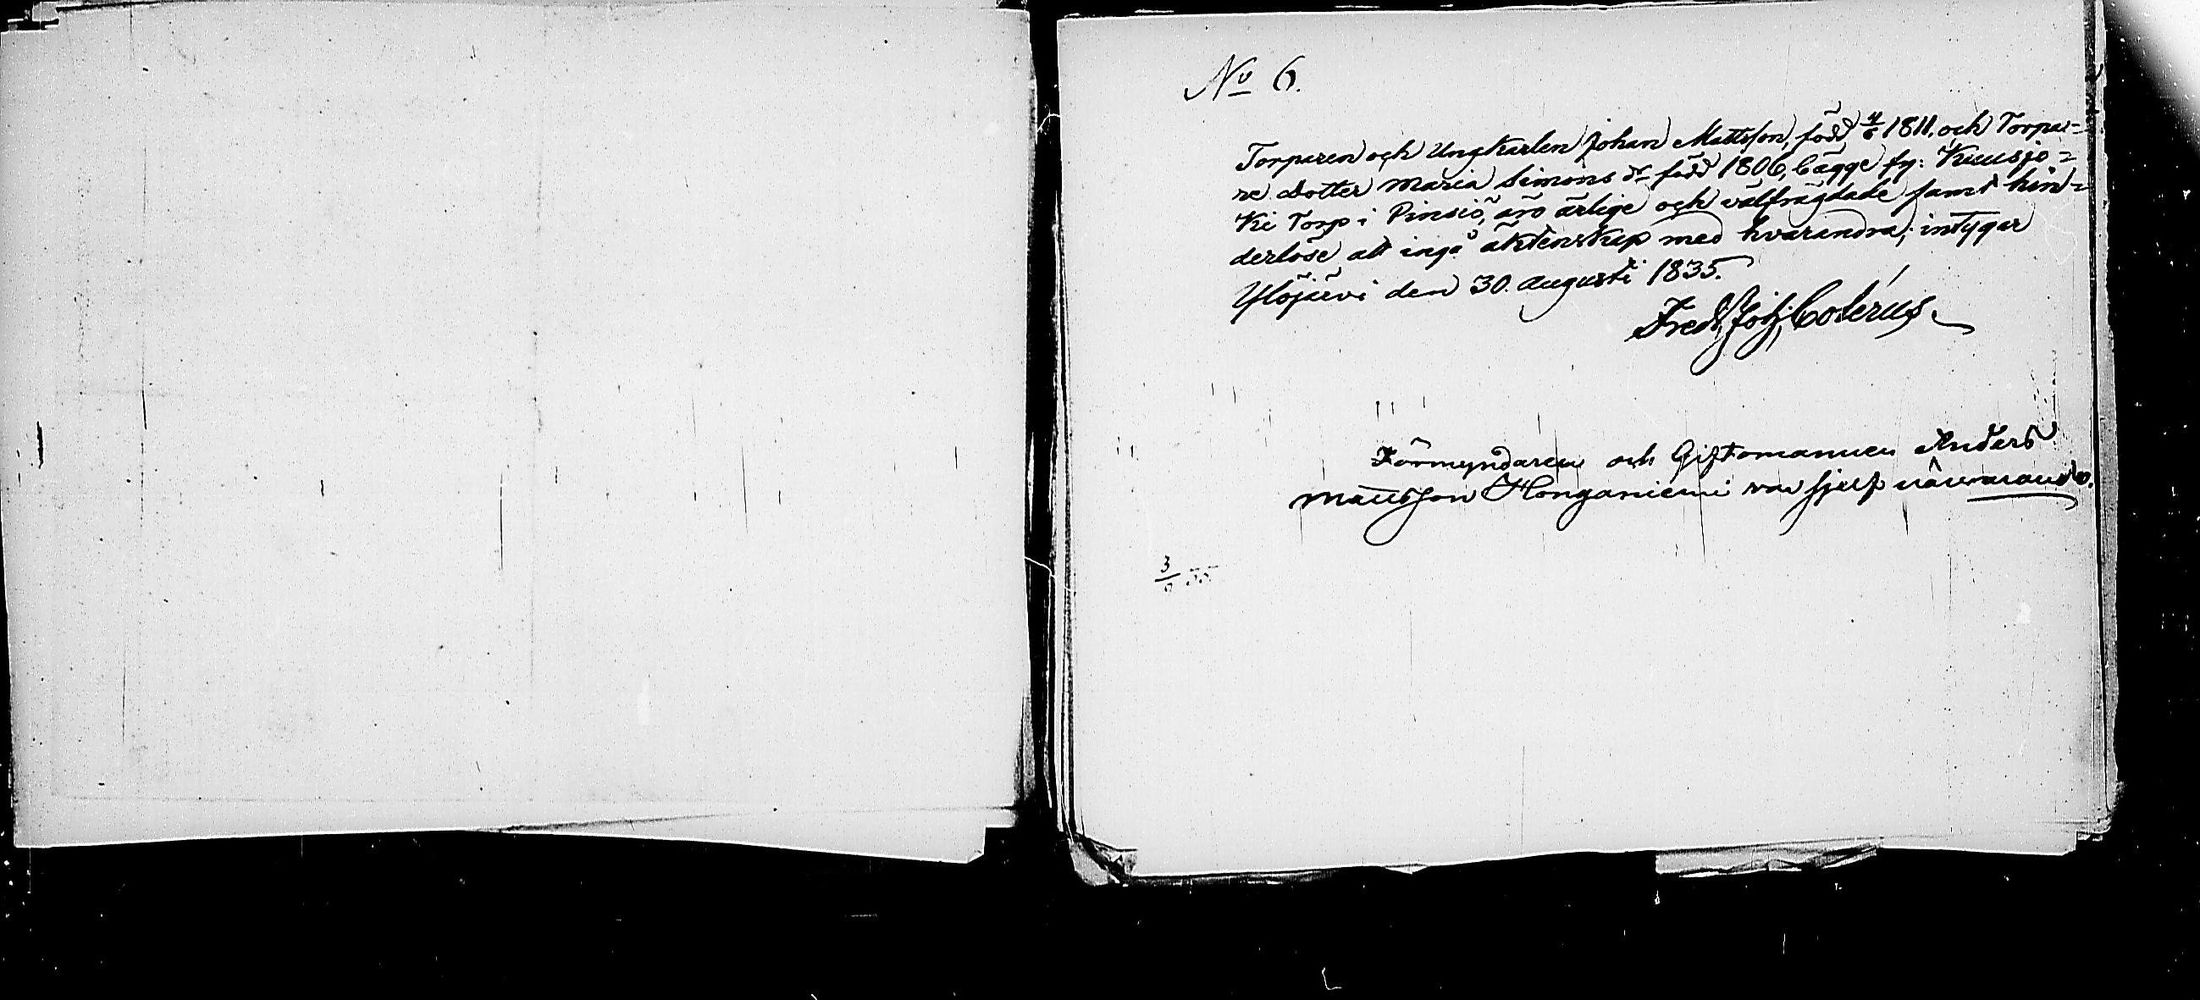 No 6.
Torparen och Ungkarlen Johan Mattsson, född 4/6 1811, och Torpa=
re Dotter Maria Simons dr född 1806, bägge fr: Kuusjo=
Ki Torp i Pinsiö, äro ärlige och välfrägdade samt hin=
derlöse att ingå äktenskap med hvarandra; intygar
Ylöjärvi den 30 augusti 1835.
Fredr Joh Colérus.
Förmyndaren och Giftomannen Anders
Mattsson Honganiemi var sjelf närvarande.